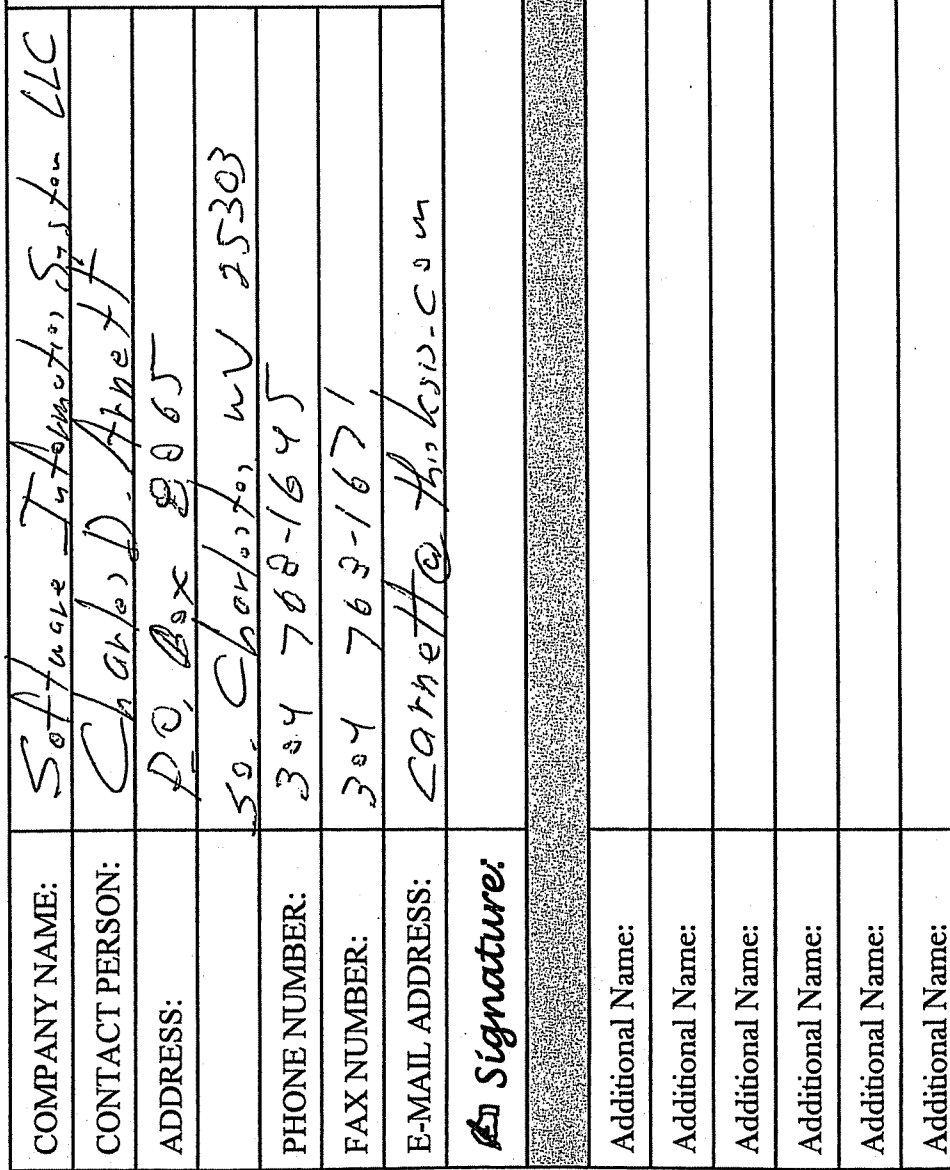 COMPANY NAME: Software Information System LLC
CONTACT PERSON: Charles D. Arnett
ADDRESS: P.O. Box 8065
So. Charleston WV 25303
PHONE NUMBER: 304 768-1645
FAX NUMBER: 304 763-1671
E-MAIL ADDRESS: carnett@thinksis.com
Signature:
Additional Name:
Additional Name:
Additional Name:
Additional Name:
Additional Name:
Additional Name: